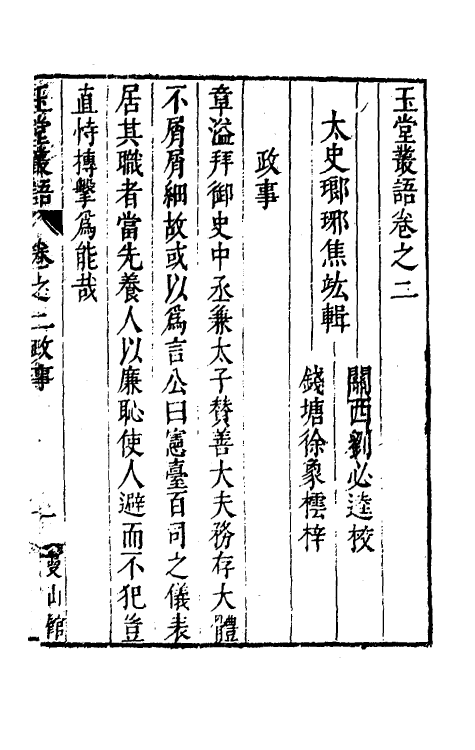 玉堂叢語卷之二
太史瑯琊焦竑輯
關西劉必達校
錢塘徐象橒梓
政事
章溢拜御史中丞兼太子贊善大夫務存大體
不屑屑細故或以爲言公曰憲臺百司之儀表
居其職者當先養人以廉恥使人避而不犯豈
直恃摶擊爲能哉
玉堂叢語 卷之二政事 一 曼山館